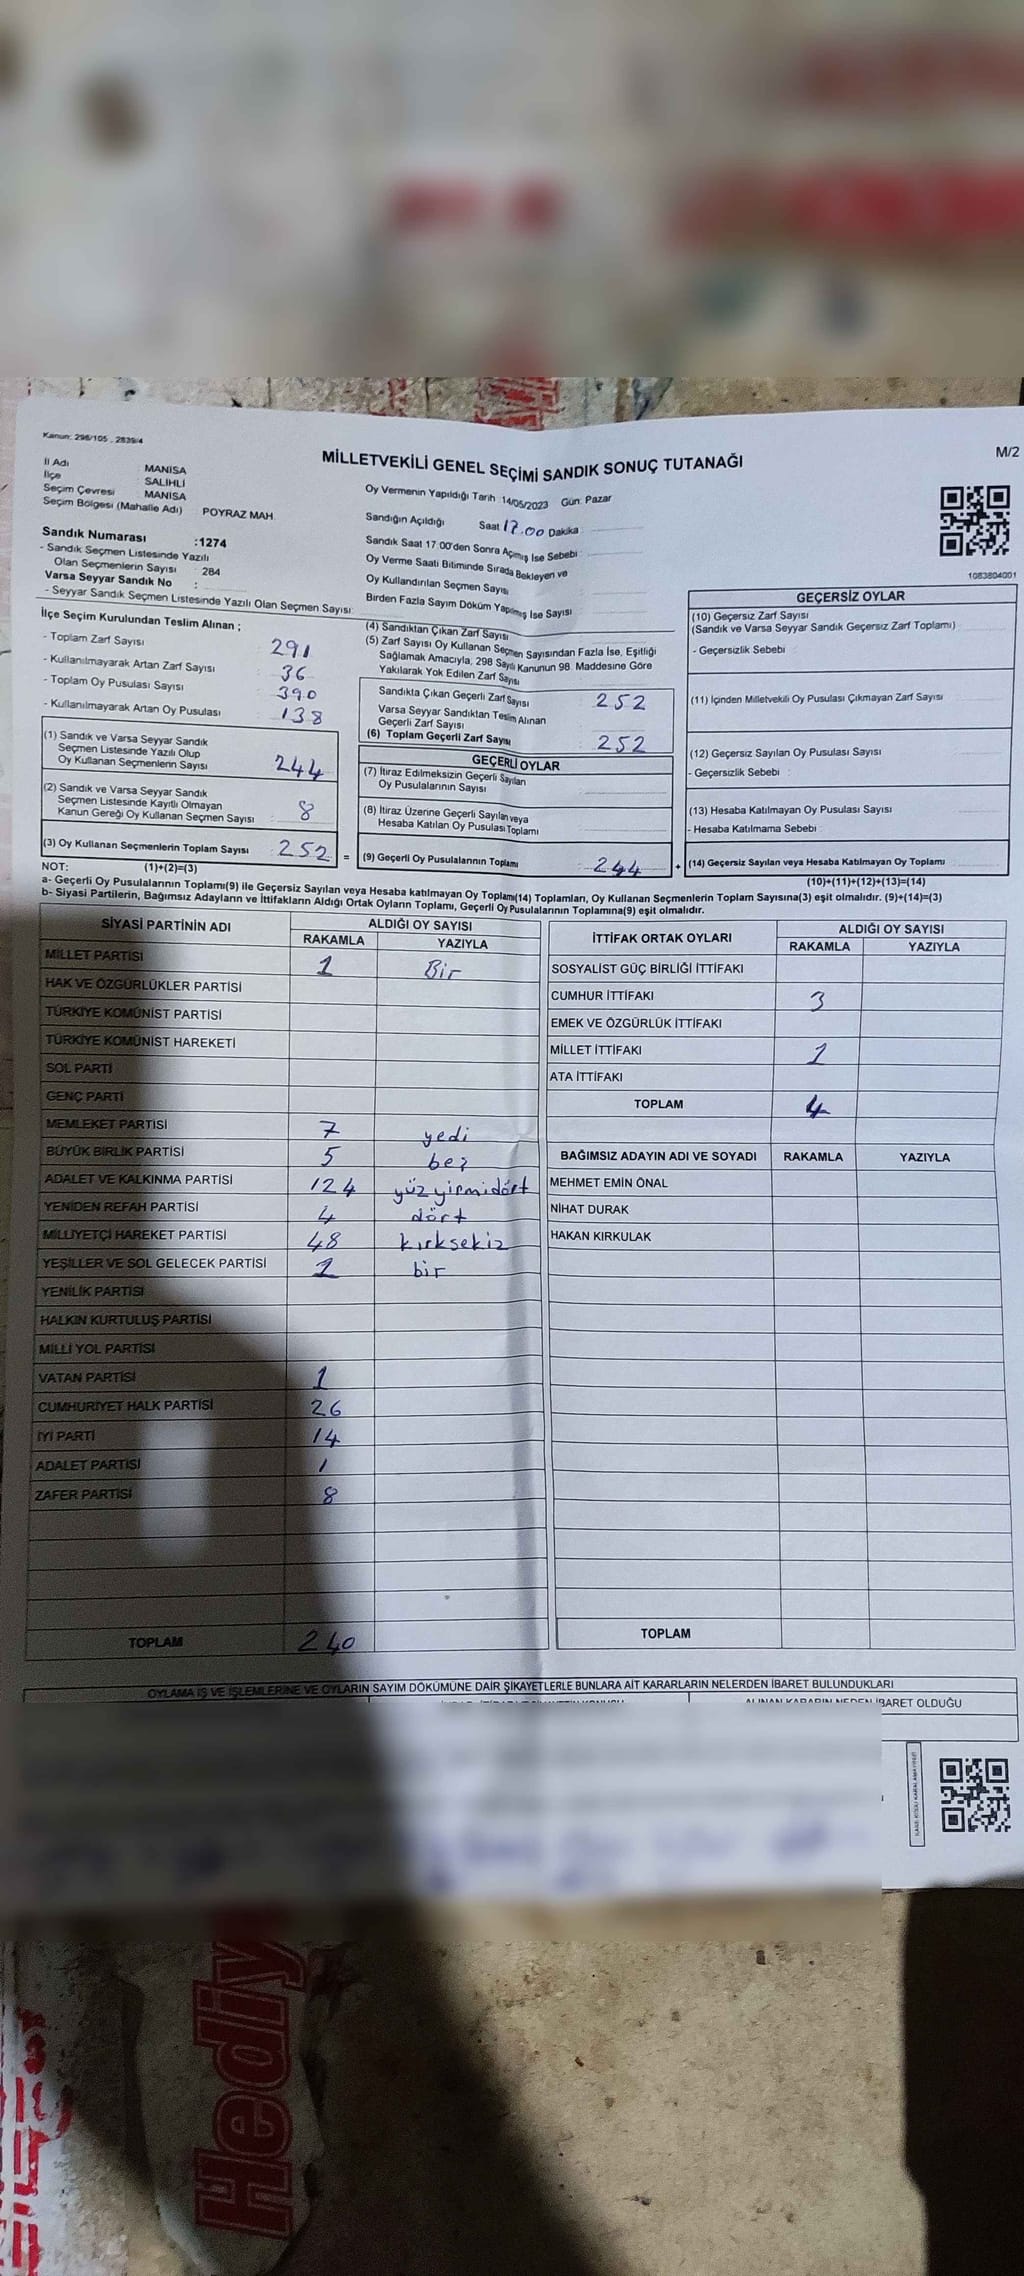 Kanun: 298/105 , 2839/4
MİLLETVEKİLİ GENEL SEÇİMİ SANDIK SONUÇ TUTANAĞI
M/2
İl Adı : MANİSA
İlçe : SALİHLİ
Seçim Çevresi : MANİSA
Seçim Bölgesi (Mahalle Adı) : POYRAZ MAH.
Sandık Numarası :1274
- Sandık Seçmen Listesinde Yazılı
Olan Seçmenlerin Sayısı : 284
Varsa Seyyar Sandık No :
- Seyyar Sandık Seçmen Listesinde Yazılı Olan Seçmen Sayısı:
Oy Vermenin Yapıldığı Tarih :14/05/2023 Gün: Pazar
Sandığın Açıldığı Saat 17.00 Dakika :
Sandık Saat 17:00'den Sonra Açılmış İse Sebebi :
Oy Verme Saati Bitiminde Sırada Bekleyen ve
Oy Kullandırılan Seçmen Sayısı
Birden Fazla Sayım Döküm Yapılmış İse Sayısı :
1083804001
İlçe Seçim Kurulundan Teslim Alınan ;
- Toplam Zarf Sayısı : 291
- Kullanılmayarak Artan Zarf Sayısı : 36
- Toplam Oy Pusulası Sayısı : 390
- Kullanılmayarak Artan Oy Pusulası : 138
(1) Sandık ve Varsa Seyyar Sandık
Seçmen Listesinde Yazılı Olup
Oy Kullanan Seçmenlerin Sayısı : 244
(2) Sandık ve Varsa Seyyar Sandık
Seçmen Listesinde Kayıtlı Olmayan
Kanun Gereği Oy Kullanan Seçmen Sayısı : 8
(3) Oy Kullanan Seçmenlerin Toplam Sayısı : 252 =
(4) Sandıktan Çıkan Zarf Sayısı
(5) Zarf Sayısı Oy Kullanan Seçmen Sayısından Fazla İse, Eşitliği
Sağlamak Amacıyla, 298 Sayılı Kanunun 98. Maddesine Göre
Yakılarak Yok Edilen Zarf Sayısı
Sandıkta Çıkan Geçerli Zarf Sayısı : 252
Varsa Seyyar Sandıktan Teslim Alınan
Geçerli Zarf Sayısı
(6) Toplam Geçerli Zarf Sayısı : 252
GEÇERLİ OYLAR
(7) İtiraz Edilmeksizin Geçerli Sayılan
Oy Pusulalarının Sayısı :
(8) İtiraz Üzerine Geçerli Sayılan veya
Hesaba Katılan Oy Pusulası Toplamı :
(9) Geçerli Oy Pusulalarının Toplamı : 244 +
GEÇERSİZ OYLAR
(10) Geçersiz Zarf Sayısı
(Sandık ve Varsa Seyyar Sandık Geçersiz Zarf Toplamı)
- Geçersizlik Sebebi :
(11) İçinden Milletvekili Oy Pusulası Çıkmayan Zarf Sayısı
(12) Geçersiz Sayılan Oy Pusulası Sayısı
- Geçersizlik Sebebi :
(13) Hesaba Katılmayan Oy Pusulası Sayısı
- Hesaba Katılmama Sebebi :
(14) Geçersiz Sayılan veya Hesaba Katılmayan Oy Toplamı :
NOT: (1)+(2)=(3)
(10)+(11)+(12)+(13)=(14)
a- Geçerli Oy Pusulalarının Toplamı(9) ile Geçersiz Sayılan veya Hesaba katılmayan Oy Toplamı(14) Toplamları, Oy Kullanan Seçmenlerin Toplam Sayısına(3) eşit olmalıdır. (9)+(14)=(3)
b- Siyasi Partilerin, Bağımsız Adayların ve İttifakların Aldığı Ortak Oyların Toplamı, Geçerli Oy Pusulalarının Toplamına(9) eşit olmalıdır.
SİYASİ PARTİNİN ADI ALDIĞI OY SAYISI
RAKAMLA YAZIYLA
MİLLET PARTİSİ 1 Bir
HAK VE ÖZGÜRLÜKLER PARTİSİ
TÜRKİYE KOMÜNİST PARTİSİ
TÜRKİYE KOMÜNİST HAREKETİ
SOL PARTİ
GENÇ PARTİ
MEMLEKET PARTİSİ 7 yedi
BÜYÜK BİRLİK PARTİSİ 5 beş
ADALET VE KALKINMA PARTİSİ 124 yüzyirmidört
YENİDEN REFAH PARTİSİ 4 dört
MİLLİYETÇİ HAREKET PARTİSİ 48 kırksekiz
YEŞİLLER VE SOL GELECEK PARTİSİ 1 bir
YENİLİK PARTİSİ
HALKIN KURTULUŞ PARTİSİ
MİLLİ YOL PARTİSİ
VATAN PARTİSİ 1
CUMHURİYET HALK PARTİSİ 26
İYİ PARTİ 14
ADALET PARTİSİ 1
ZAFER PARTİSİ 8
TOPLAM 240
İTTİFAK ORTAK OYLARI ALDIĞI OY SAYISI
RAKAMLA YAZIYLA
SOSYALİST GÜÇ BİRLİĞİ İTTİFAKI
CUMHUR İTTİFAKI 3
EMEK VE ÖZGÜRLÜK İTTİFAKI
MİLLET İTTİFAKI 1
ATA İTTİFAKI
TOPLAM 4
BAĞIMSIZ ADAYIN ADI VE SOYADI RAKAMLA YAZIYLA
MEHMET EMİN ÖNAL
NİHAT DURAK
HAKAN KIRKULAK
TOPLAM
OYLAMA İŞ VE İŞLEMLERİNE VE OYLARIN SAYIM DÖKÜMÜNE DAİR ŞİKAYETLERLE BUNLARA AİT KARARLARIN NELERDEN İBARET BULUNDUKLARI
ALINAN KARARIN NEDEN İBARET OLDUĞU
Hediy